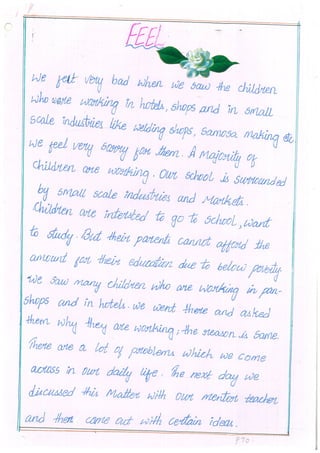 FEEL
We felt very bad when we saw the children
who were working in hotels, shops and in small
scale industries like welding shops, Samosa making etc
we feel very sorry for them. A Majority of
children are working. Our school is surrounded
by small scale industries and Markets.
Children are intersted to go to school, want
to study. But their parents cannot afford the
amount for their education due to below poverty.
We saw many children who are working in pan-
shops and in hotels. we went there and asked
them why they are working; the reason is same.
There are a lot of problems which we come
across in our daily life. The next day we
discussed this Matter with our mentor teacher
and then come out with certain ideas.
PTO